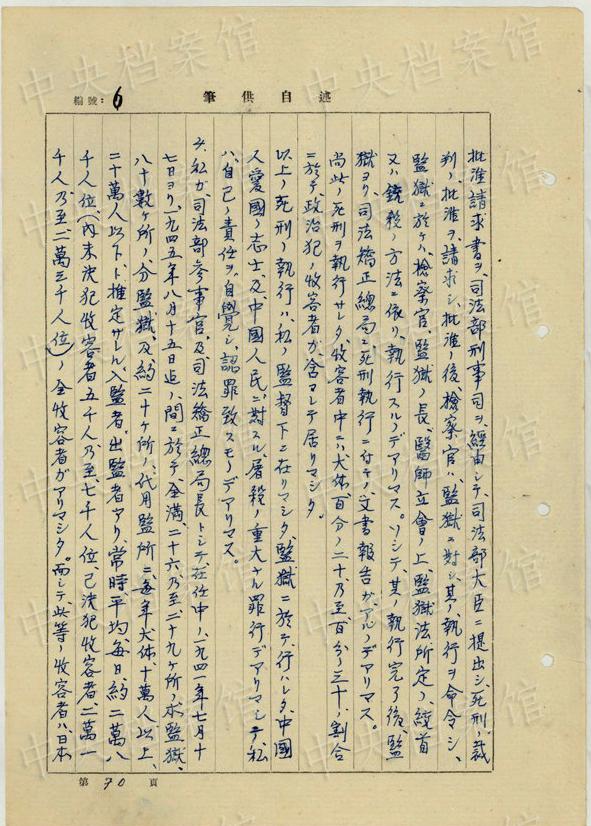 編號：6
筆供自述
批准請求書ヲ、司法部刑事司ヲ、経由シテ、司法部大臣ニ提出シ、死刑ノ裁
判ノ批准ヲ請求シ、批准ノ後、検察官ハ、監獄ニ対シ、其ノ執行ヲ命令シ、
監獄ニ於テハ、検察官、監獄ノ長、醫師立會ノ上、監獄法所定ノ、絞首
又ハ銃殺ノ方法ニ依リ、執行スルノデアリマス。ソシテ、其ノ執行完了後、監
獄ヨリ、司法矯正總局ニ、死刑執行ニ付テノ文書報告ガアルノデアリマス。
尚此ノ死刑ヲ執行サレタ、收容者中ニハ、大体、百分ノ二十乃至百分ノ三十ノ割合
ニ於テ、政治犯ノ收容者ガ、含マレテ居リマシタ。
以上ノ死刑ノ執行ハ、私ノ監督下ニ在リマシタ、監獄ニ於テ、行ハレタ、中國
人愛國ノ志士、及中國人民ニ対スル、屠殺ノ重大ナル罪行デアリマシテ、私
ハ、自己ノ責任ヲ、自覺シ、認罪致スモノデアリマス。
私ガ司法部参事官及司法矯正總局長トシテ、在任中ノ、一九四一年七月十
七日ヨリ、一九四五年八月十五日迄ノ間ニ於テ、全満、二十六乃至二十九ヶ所ノ本監獄、
八十數ヶ所ノ分監獄、及約二十ヶ所ノ代用監所ニ、毎年、大体、十萬人以上、
二十萬人以下ト推定サレル入監者、出監者アリ、常時平均、毎日、約二萬八
千人位、(内未決犯收容者五千人乃至七千人位、已決犯收容者、二萬一
千人乃至二萬三千人位)ノ全收容者ガアリマシタ。而シテ此等ノ收容者ハ、日本
第 70 頁
中央档案馆